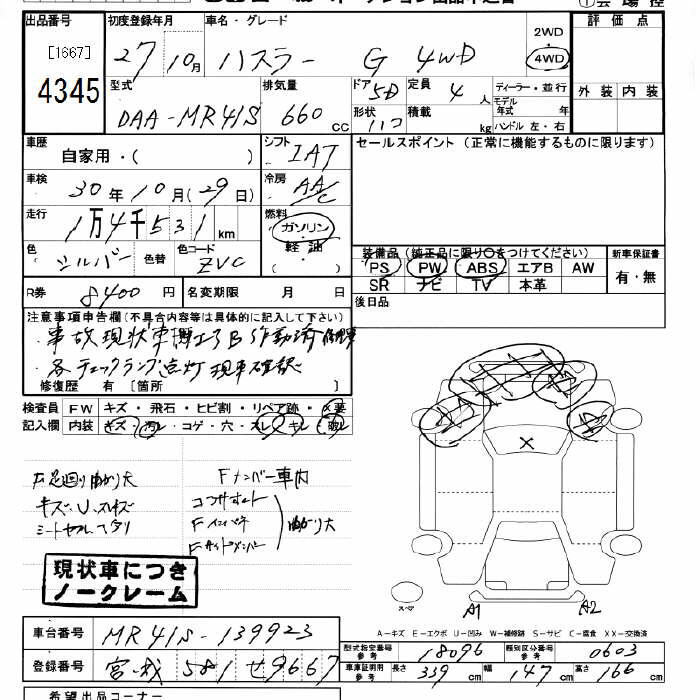 出品番号 初度登録年月 車名・グレード 2WD 評価点
[1667] 27 10月 ハスラー G 4WD 4WD
4345 型式 排気量 ドア 5D 定員 4人 ディーラー・並行 外装 内装
DAA-MR41S 660cc 形状 積載 kg モデル年式 年
ハンドル 左・右
車歴 自家用・( ) シフト IAT セールスポイント (正常に機能するものに限ります)
車検 30年10月(29日) 冷房 AAC
走行 1万4千531km 燃料 ガソリン・軽油
色 シルバー 色替 色コード ZVC 装備品(純正品に限り○をつけてください) 新車保証書
PS PW ABS エアB AW 有・無
SR ナビ TV 本革
R券 8400円 名変期限 月 日 後日品
注意事項申告欄(不具合内容等は具体的に記入して下さい)
・事故現状車 エアB作動済
・各チェックランプ点灯 現車確認
修復歴 有[箇所 ]
検査員 FW キズ・飛石・ヒビ割・リペア跡・×要
記入欄 内装 キズ・汚レ・コゲ・穴・スレ・キレ・破レ
F足廻り曲がり大 Fナンバー車内
キズ・U・スレキズ コアサポート
Fインパネ 曲がり大
Fサイドメンバー
現状車につき
ノークレーム
スペア A1 A2
A−キズ E−エクボ U−凹み W−補修跡 S−サビ C−腐食 XX−交換済
車台番号 MR41S-139923 型式指定番号 参考 18096 類別区分番号 参考 0603
登録番号 581 せ 9667 車庫証明用 参考 長さ 339cm 幅 147cm 高さ 166cm
希望出品コーナー